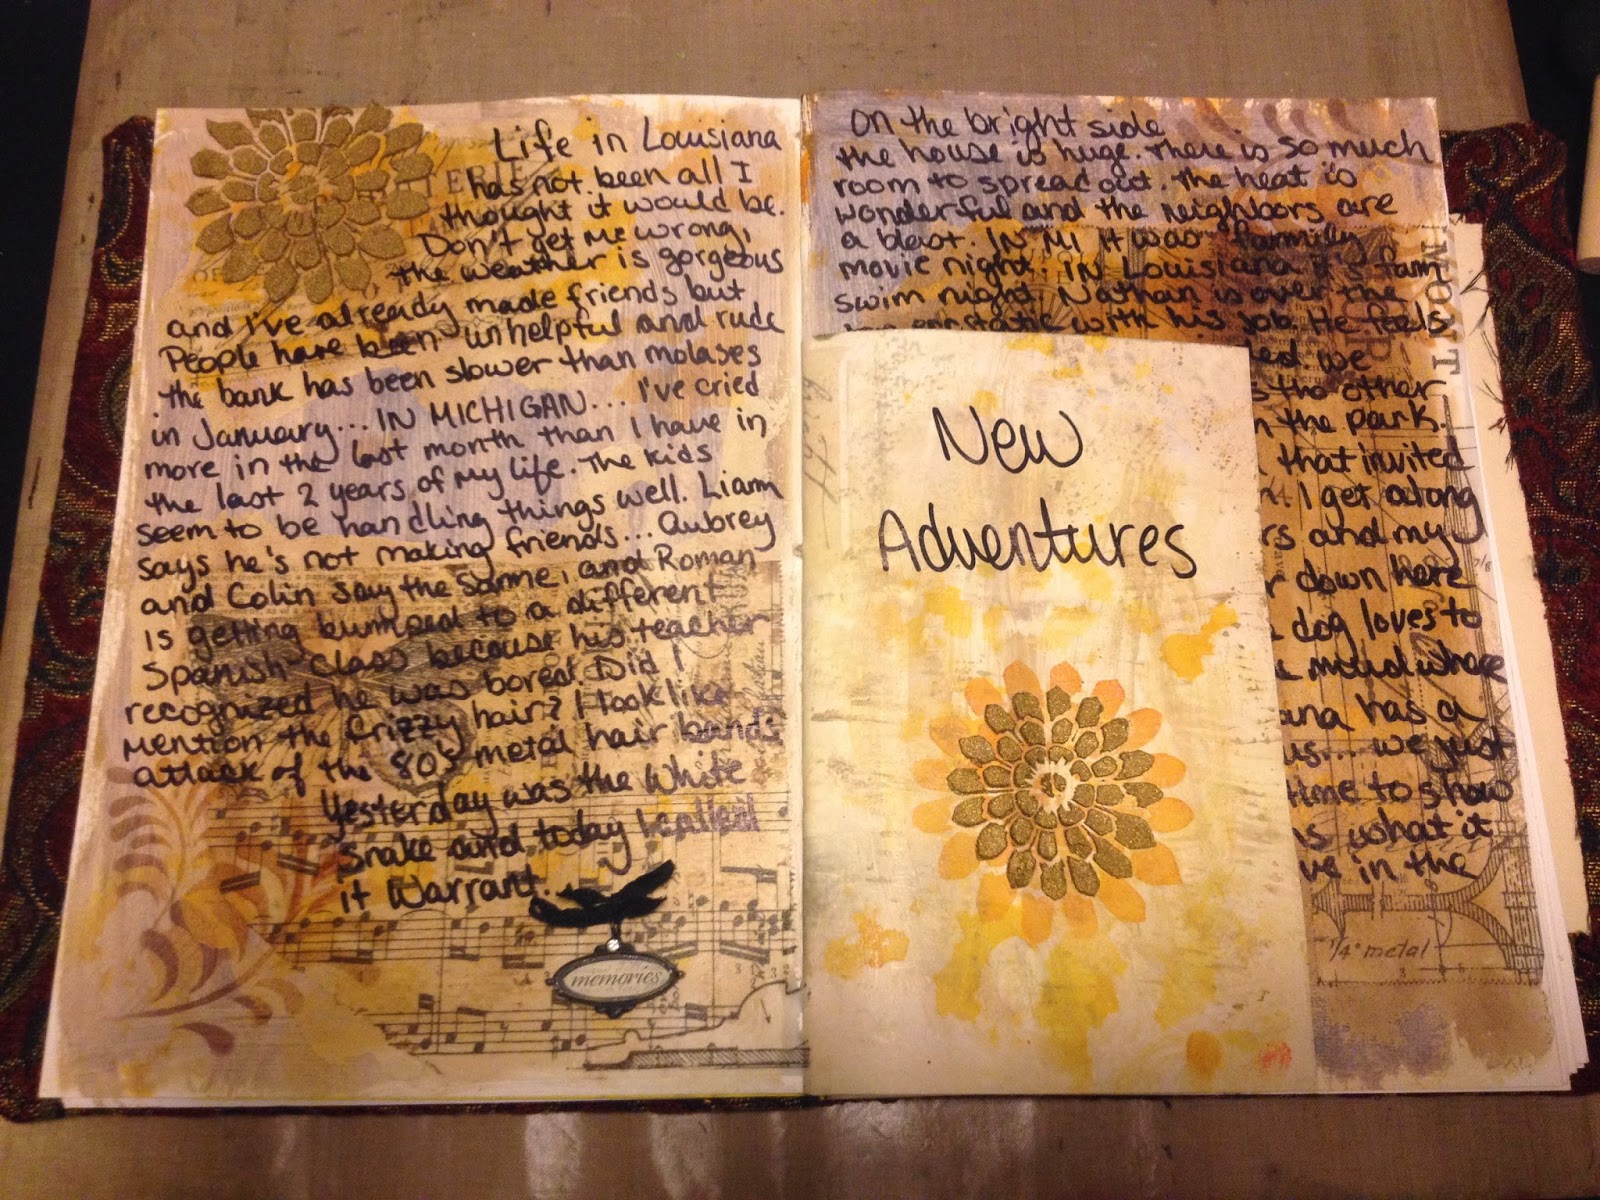 Life in Louisiana
has not been all I
thought it would be.
Don't get me wrong,
the weather is gorgeous
and I've already made friends but
People have been unhelpful and rude
the bank has been slower than molases
in January... IN MICHIGAN... I've cried
more in the last month than I have in
the last 2 years of my life. The kids
seem to be handling things well. Liam
says he's not making friends... Aubrey
and Colin say the same, and Roman
is getting bumped to a different
Spanish class because his teacher
recognized he was bored. Did I
mention the frizzy hair? I look like
attack of the 80's metal hair bands
Yesterday was the White
Snake and today I called
it Warrant.
memories
On the bright side
the house is huge. There is so much
room to spread out. The heat is
wonderful and the neighbors are
a blast. IN MI it was family
movie night. IN Louisiana it's fam
swim night. Nathan is over the
with his job. He feels
we
the other
the park.
that invited
I get along
and my
down here
dog loves to
has a
we just
time to show
what it
in the
New
Adventures
MONT
1/4" metal